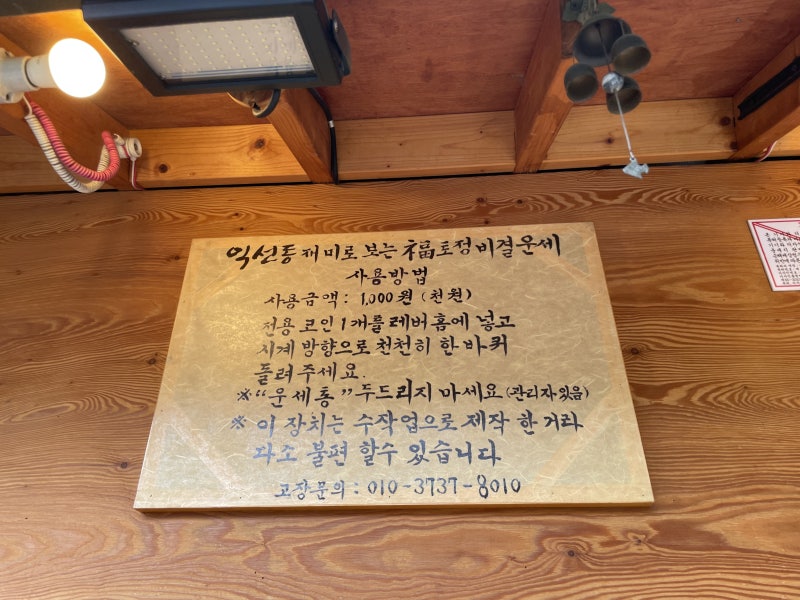 익선동 재미로 보는 福토정비결운세
사용방법
사용금액: 1,000원 (천원)
전용 코인 1개를 레버 홈에 넣고
시계 방향으로 천천히 한 바퀴
돌려주세요.
※ "운세통" 두드리지 마세요 (관리자있음)
※ 이 장치는 수작업으로 제작 한 거라
다소 불편 할수 있습니다
고장문의: 010-3737-8010